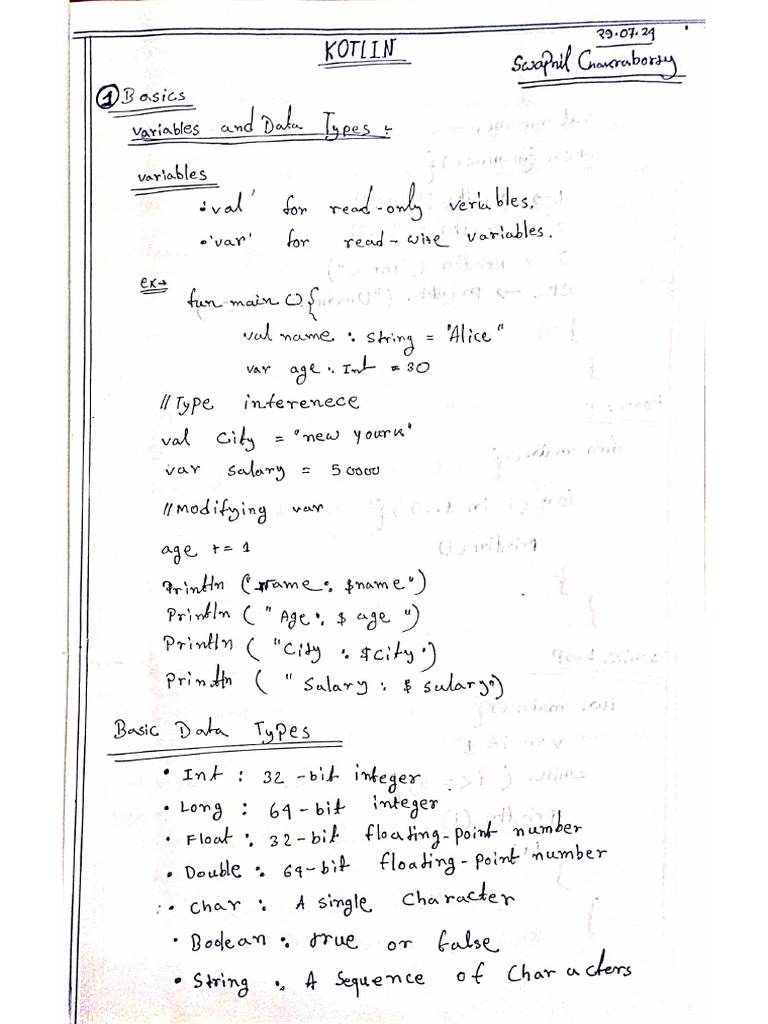 KOTLIN
29.07.24
Swapnil Chakraborty
① Basics
Variables and Data Types :
variables
• 'val' for read-only veriables.
• 'var' for read-wite variables.
ex→
fun main () {
val name : string = "Alice"
var age : Int = 30
// Type interenece
val City = "new yourk"
var salary = 50000
// Modifying var
age += 1
Println ("Name : $name")
Println ( " Age : $ age ")
Println ( "City : $City ")
Println ( " Salary : $ sulary")
Basic Data Types
• Int : 32-bit integer
• Long : 64-bit integer
• Float : 32-bit floating-point number
• Double : 64-bit floating-point number
• Char : A single Character
• Boolean : true or false
• String : A Sequence of Characters